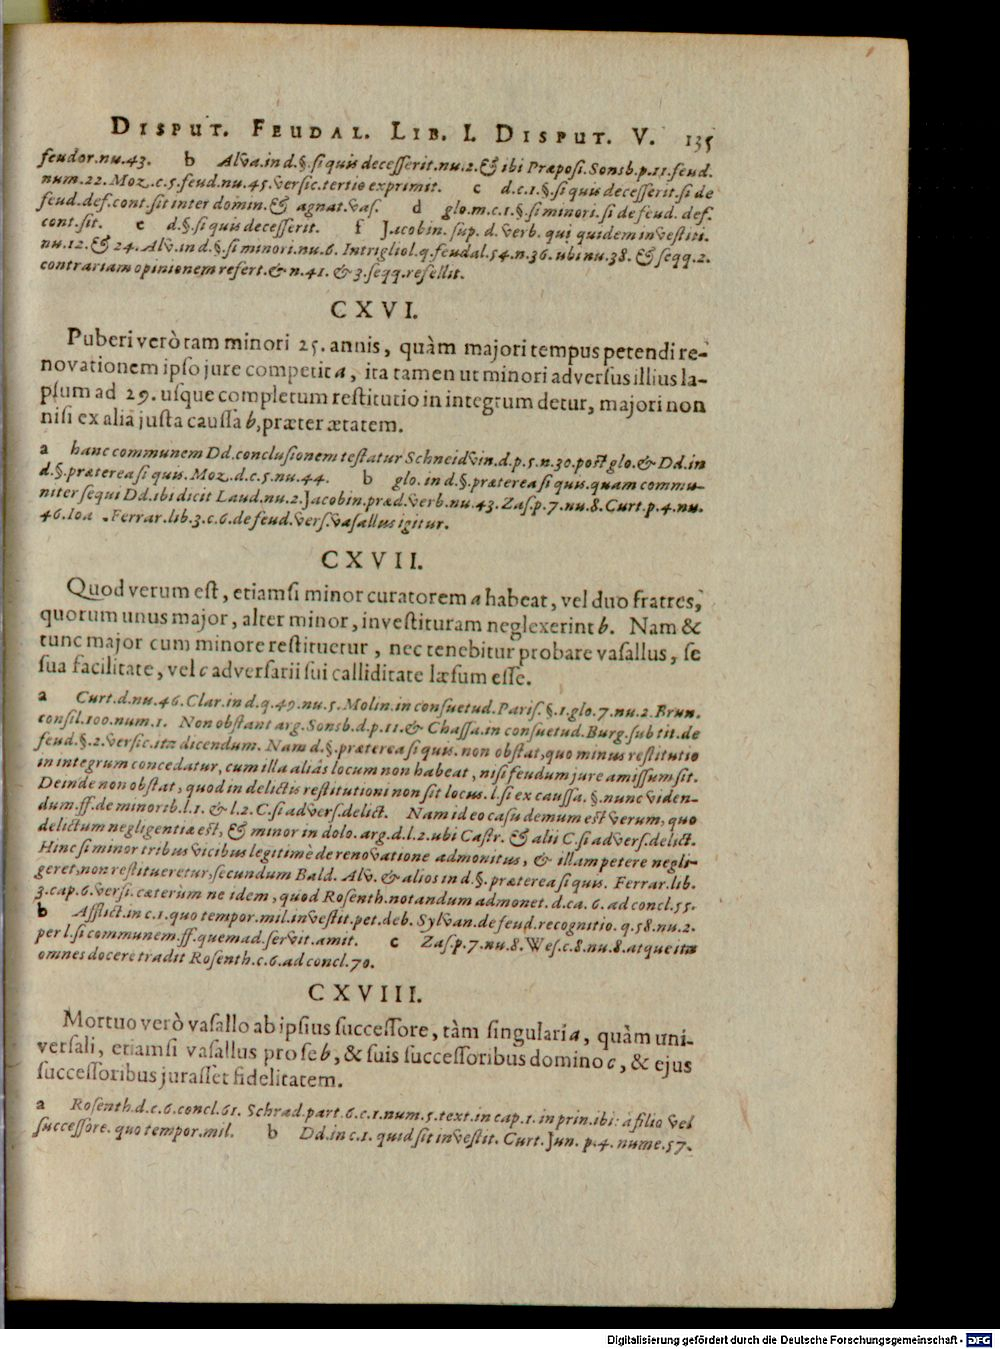 DISPUT. FEUDAL. LIB. I. DISPUT. V. 135
feudor.nu.43. b Alva.in d.§.si quis decesserit.nu.2.& ibi Præposi.Sonsb.p.11.feud.
num.22. Moz.c.5.feud.nu.45.versic.tertio exprimit. c d.c.1.§.si quis decesserit.si de
feud.def.cont.sit inter domin.& agnat.vas. d glo.m.c.1.§.si minori.si de feud. def.
cont.sit. e d.§.si quis decesserit. f Jacobin. sup. d. verb. qui quidem investiti.
nu.12.& 24. Alv.in d.§.si minori.nu.6. Intrigliol.q.feudal.54.n.36. ubi nu.38. & seqq.2.
contrariam opinionem refert.& n.41. & 3.seqq.refellit.
CXVI.
Puberi verò tam minori 25. annis, quàm majori tempus petendi re-
novationem ipso jure competit a, ita tamen ut minori adversus illius la-
psum ad 29. usque completum restitutio in integrum detur, majori non
nisi ex alia justa caussa b, præter ætatem.
a hanc communem Dd.conclusionem testatur Schneidvin.d.p.5.n.30.post glo.& Dd.in
d.§.præterea si quis. Moz.d.c.5.nu.44. b glo. in d.§.præterea si quis.quam commu-
niter sequi Dd.ibi dicit Laud.nu.2.Jacobin.præd.verb.nu.43. Zas.p.7.nu.8. Curt.p.4.nu.
46.Ioa . Ferrar.lib.3.c.6.de feud.vers.vasallus igitur.
CXVII.
Quod verum est, etiamsi minor curatorem a habeat, vel duo fratres,
quorum unus major, alter minor, investituram neglexerint b. Nam &
tunc major cum minore restituetur, nec tenebitur probare vasallus, se
sua facilitate, vel c adversarii sui calliditate læsum esse.
a Curt.d.nu.46. Clar.in d.q.49.nu.5. Molin.in consuetud.Paris.§.1.glo.7.nu.2. Brun.
consil.100.num.1. Non obstant arg.Sonsb.d.p.11.& Chassa.in consuetud.Burg.sub tit.de
feud.§.2.versic.ita dicendum. Nam d.§.præterea si quis. non obstat, quo minus restitutio
in integrum concedatur, cum illa aliàs locum non habeat, nisi feudum jure amissum sit.
Deinde non obstat, quod in delictis restitutioni non sit locus. l.si ex caussa. §.nunc viden-
dum.ff.de minorib.l.1. & l.2. C.si advers.delict. Nam id eo casu demum est verum, quo
delictum negligentiæ est, & minor in dolo. arg.d.l.2.ubi Castr. & alii C.si advers.delict.
Hinc si minor tribus vicibus legitimè de renovatione admonitus, & illam petere negli-
geret, non restitueretur, secundum Bald. Alv. & alios in d.§. præterea si quis. Ferrar.lib.
3.cap.6.versi.cæterùm ne idem, quod Rosenth.notandum admonet. d.ca. 6. ad concl.55.
b Afflict.in c.1.quo tempor.mil.investit.pet.deb. Sylvan.de feud.recognitio. q.58.nu.2.
per l.si communem.ff.quemad.servit.amit. c Zas.p.7.nu.8. Wes.c.8.nu.8.atque ita
omnes docere tradit Rosenth.c.6.ad concl.70.
CXVIII.
Mortuo verò vasallo ab ipsius successore, tàm singulari a, quàm uni-
versali, etiamsi vasallus pro se b, & suis successoribus domino c, & ejus
successoribus jurasset fidelitatem.
a Rosenth.d.c.6.concl.61. Schrad.part.6.c.1.num.5.text.in cap.1.in prin.ibi: à filio vel
successore. quo tempor.mil. b Dd.in c.1. quid sit investit. Curt.Jun. p.4. nume.57.
Digitalisierung gefördert durch die Deutsche Forschungsgemeinschaft - DFG